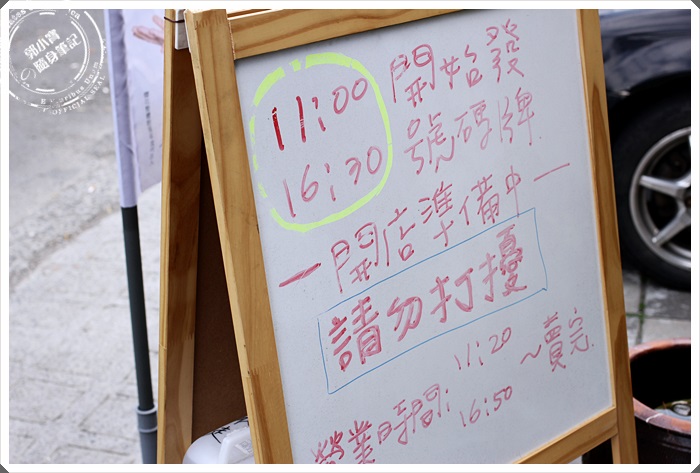 郭小寶
の隨身筆記
OFFICIAL SEAL
11:00 開始發
16:30 號碼牌
一開店準備中一
請勿打擾
營業時間: 11:20 ~賣完
16:50